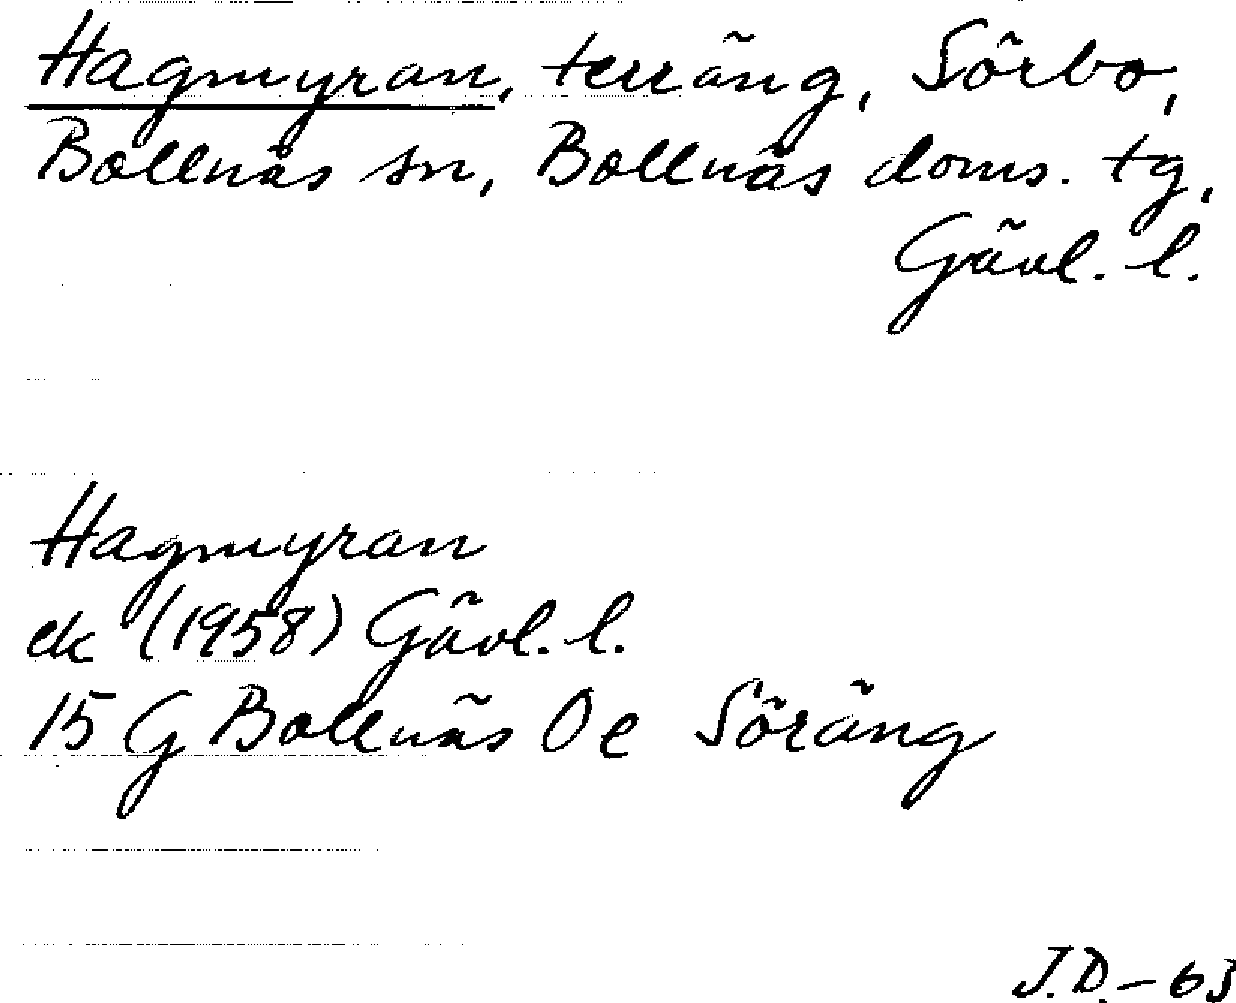 Hagmyran, terräng, Sörbo,
Bollnäs sn, Bollnäs doms. tg,
Gävl. l.
Hagmyran
ek (1958) Gävl. l.
15 G Bollnäs Oe Söräng
J.D. - 63